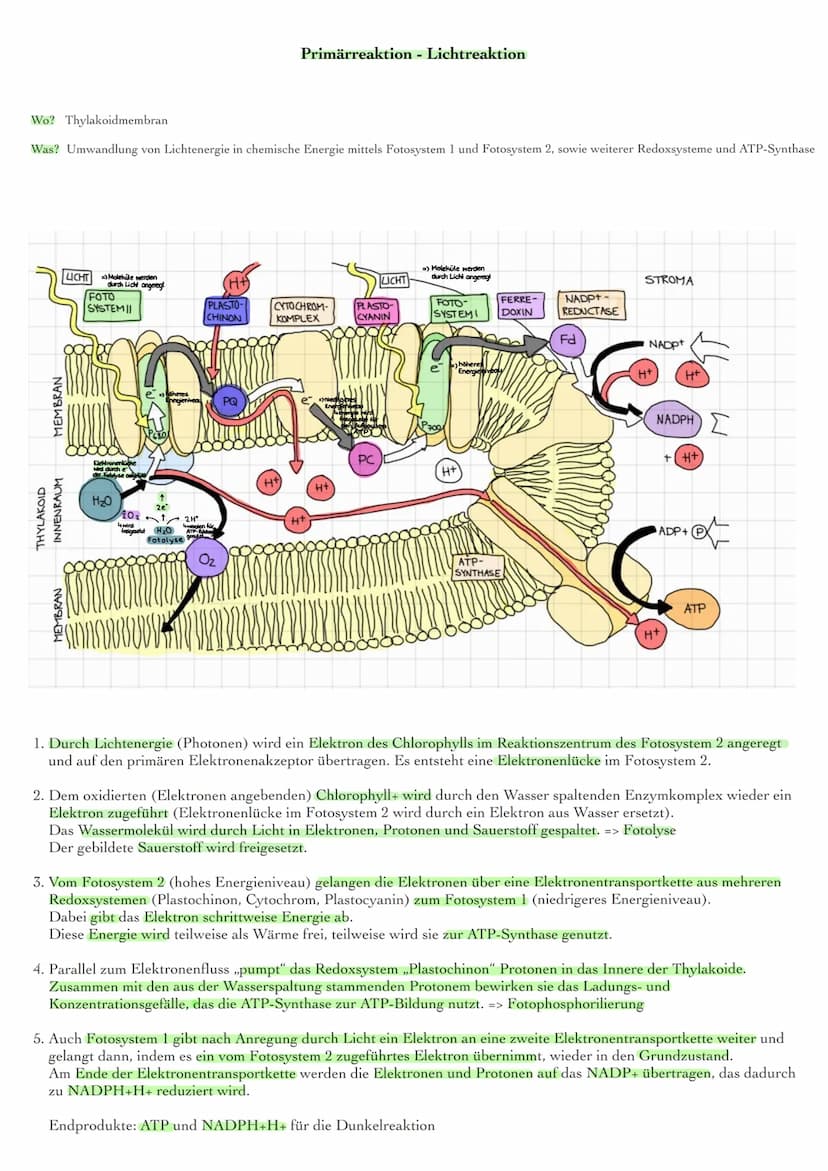 Primärreaktion - Lichtreaktion
Wo? Thylakoidmembran
Was? Umwandlung von Lichtenergie in chemische Energie mittels Fotosystem 1 und Fotosystem 2, sowie weiterer Redoxsysteme und ATP-Synthase
LICHT
=) Moleküle werden
durch Licht angeregt
FOTO
SYSTEM II
H+
PLASTO-
CHINON
CYTOCHROM-
KOMPLEX
PLASTO-
CYANIN
LICHT
=) Moleküle werden
durch Licht angeregt
FOTO-
SYSTEM I
FERRE-
DOXIN
NADP+-
REDUCTASE
STROMA
MEMBRAN
e-
=) höheres
Energieniveau
P680
PQ
e-
PC
e-
=) höheres
Energieniveau
P700
Fd
NADP+
H+
H+
NADPH
+ H+
THYLAKOID
INNENRAUM
H2O
2e-
H2O
2H+
Fotolyse
O2
H+
H+
H+
H+
ATP-
SYNTHASE
ADP+ P
ATP
H+
MEMBRAN
1. Durch Lichtenergie (Photonen) wird ein Elektron des Chlorophylls im Reaktionszentrum des Fotosystem 2 angeregt
und auf den primären Elektronenakzeptor übertragen. Es entsteht eine Elektronenlücke im Fotosystem 2.
2. Dem oxidierten (Elektronen angebenden) Chlorophyll+ wird durch den Wasser spaltenden Enzymkomplex wieder ein
Elektron zugeführt (Elektronenlücke im Fotosystem 2 wird durch ein Elektron aus Wasser ersetzt).
Das Wassermolekül wird durch Licht in Elektronen, Protonen und Sauerstoff gespaltet. => Fotolyse
Der gebildete Sauerstoff wird freigesetzt.
3. Vom Fotosystem 2 (hohes Energieniveau) gelangen die Elektronen über eine Elektronentransportkette aus mehreren
Redoxsystemen (Plastochinon, Cytochrom, Plastocyanin) zum Fotosystem 1 (niedrigeres Energieniveau).
Dabei gibt das Elektron schrittweise Energie ab.
Diese Energie wird teilweise als Wärme frei, teilweise wird sie zur ATP-Synthase genutzt.
4. Parallel zum Elektronenfluss „pumpt“ das Redoxsystem „Plastochinon“ Protonen in das Innere der Thylakoide.
Zusammen mit den aus der Wasserspaltung stammenden Protonem bewirken sie das Ladungs- und
Konzentrationsgefälle, das die ATP-Synthase zur ATP-Bildung nutzt. => Fotophosphorilierung
5. Auch Fotosystem 1 gibt nach Anregung durch Licht ein Elektron an eine zweite Elektronentransportkette weiter und
gelangt dann, indem es ein vom Fotosystem 2 zugeführtes Elektron übernimmt, wieder in den Grundzustand.
Am Ende der Elektronentransportkette werden die Elektronen und Protonen auf das NADP+ übertragen, das dadurch
zu NADPH+H+ reduziert wird.
Endprodukte: ATP und NADPH+H+ für die Dunkelreaktion